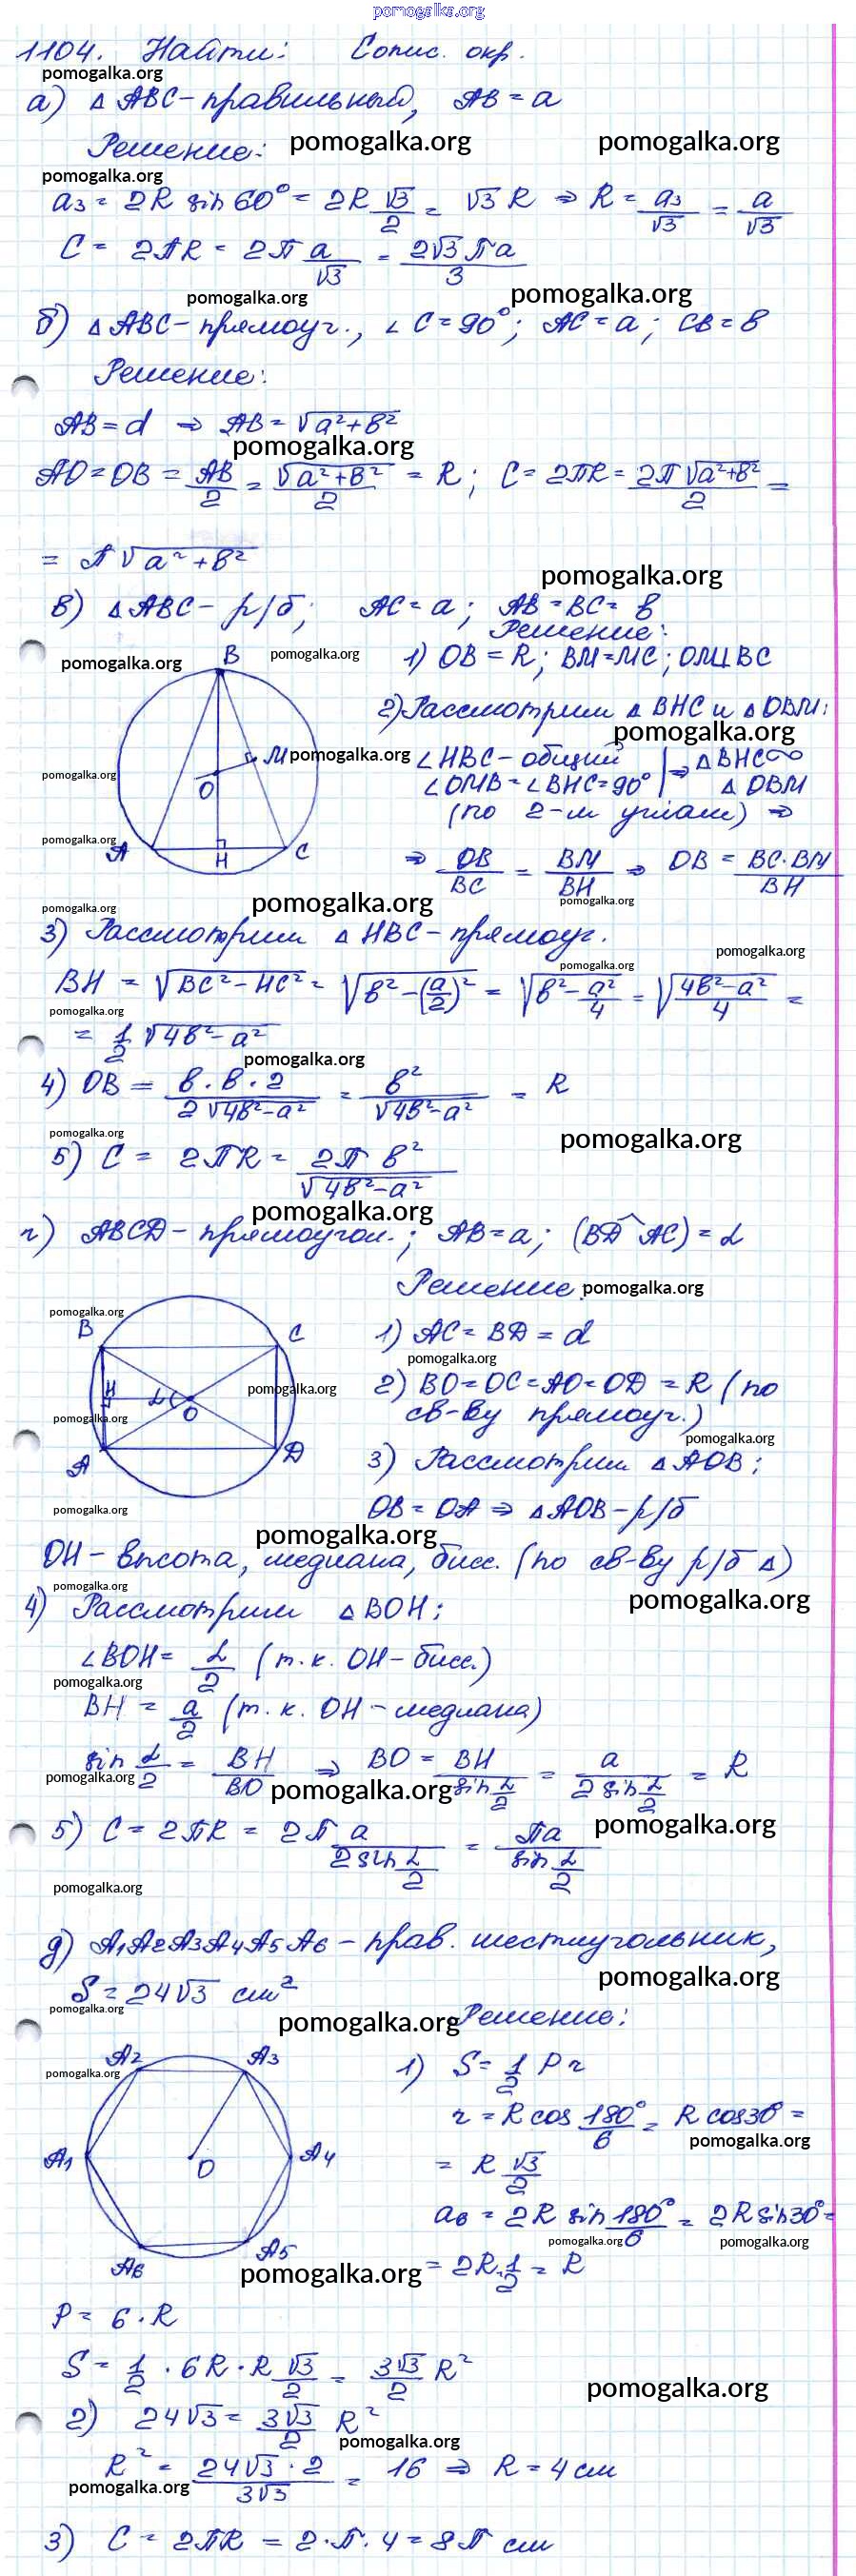 pomogalka.org
1104. Найти: Cопис. окр.
pomogalka.org
а) △ABC - правильный, AB = a
Решение: pomogalka.org pomogalka.org
pomogalka.org
a₃ = 2R sin 60° = 2R √3/2 = √3 R ⇒ R = a₃/√3 = a/√3
C = 2πR = 2π a/√3 = 2√3πa/3
pomogalka.org pomogalka.org
б) △ABC - прямоуг., ∠C = 90°; AC = a; CB = в
Решение:
AB = d ⇒ AB = √(a²+в²)
pomogalka.org
AO = OB = AB/2 = √(a²+в²)/2 = R; C = 2πR = 2π√(a²+в²)/2 =
= π√(a²+в²)
pomogalka.org
в) △ABC - р/б; AC = a; AB = BC = в
Решение:
pomogalka.org pomogalka.org
B
1) OB = R; BM = MC; OM⊥BC
2) Рассмотрим △BHC и △OBM:
pomogalka.org
M pomogalka.org
∠HBC - общий
∠OMB = ∠BHC = 90° ⇒ △BHC∞
△OBM
pomogalka.org
O
(по 2-м углам) ⇒
pomogalka.org
A H C
⇒ OB/BC = BM/BH ⇒ OB = BC·BM/BH
pomogalka.org pomogalka.org pomogalka.org
3) Рассмотрим △HBC - прямоуг.
pomogalka.org
pomogalka.org
BH = √(BC²-HC²) = √(в²-(a/2)²) = √(в²-a²/4) = √((4в²-a²)/4) =
pomogalka.org
= 1/2 √(4в²-a²)
pomogalka.org
4) OB = в·в·2/(2√(4в²-a²)) = в²/√(4в²-a²) = R
pomogalka.org pomogalka.org
5) C = 2πR = 2π в²/√(4в²-a²)
pomogalka.org
г) ABCD - прямоугол.; AB = a; (BD^AC) = α
Решение: pomogalka.org
pomogalka.org
B C
1) AC = BD = d
pomogalka.org
H α O pomogalka.org
2) BO = OC = AO = OD = R (по
св-ву прямоуг.)
pomogalka.org pomogalka.org
A D
3) Рассмотрим △AOB:
OB = OA ⇒ △AOB - р/б
pomogalka.org
pomogalka.org
OH - высота, медиана, бисс. (по св-ву р/б △)
pomogalka.org pomogalka.org
4) Рассмотрим △BOH:
∠BOH = α/2 (т.к. OH - бисс.)
pomogalka.org
BH = a/2 (т.к. OH - медиана)
sin α/2 = BH/BO ⇒ BO = BH/sin α/2 = a/(2 sin α/2) = R
pomogalka.org pomogalka.org
5) C = 2πR = 2π a/(2 sin α/2) = πa/(sin α/2)
pomogalka.org
pomogalka.org
д) A₁A₂A₃A₄A₅A₆ - прав. шестиугольник,
S = 24√3 см²
pomogalka.org
pomogalka.org
pomogalka.org Решение:
A₂ A₃
pomogalka.org
1) S = 1/2 P r
r = R cos 180°/6 = R cos 30° =
pomogalka.org
A₁ O A₄
= R √3/2
a₆ = 2R sin 180°/6 = 2R sin 30° =
pomogalka.org pomogalka.org
A₆ A₅
pomogalka.org
= 2R·1/2 = R
P = 6·R
S = 1/2 · 6R · R √3/2 = 3√3/2 R²
pomogalka.org
2) 24√3 = 3√3/2 R²
pomogalka.org
R² = 24√3·2/3√3 = 16 ⇒ R = 4 см
pomogalka.org
3) C = 2πR = 2·π·4 = 8π см